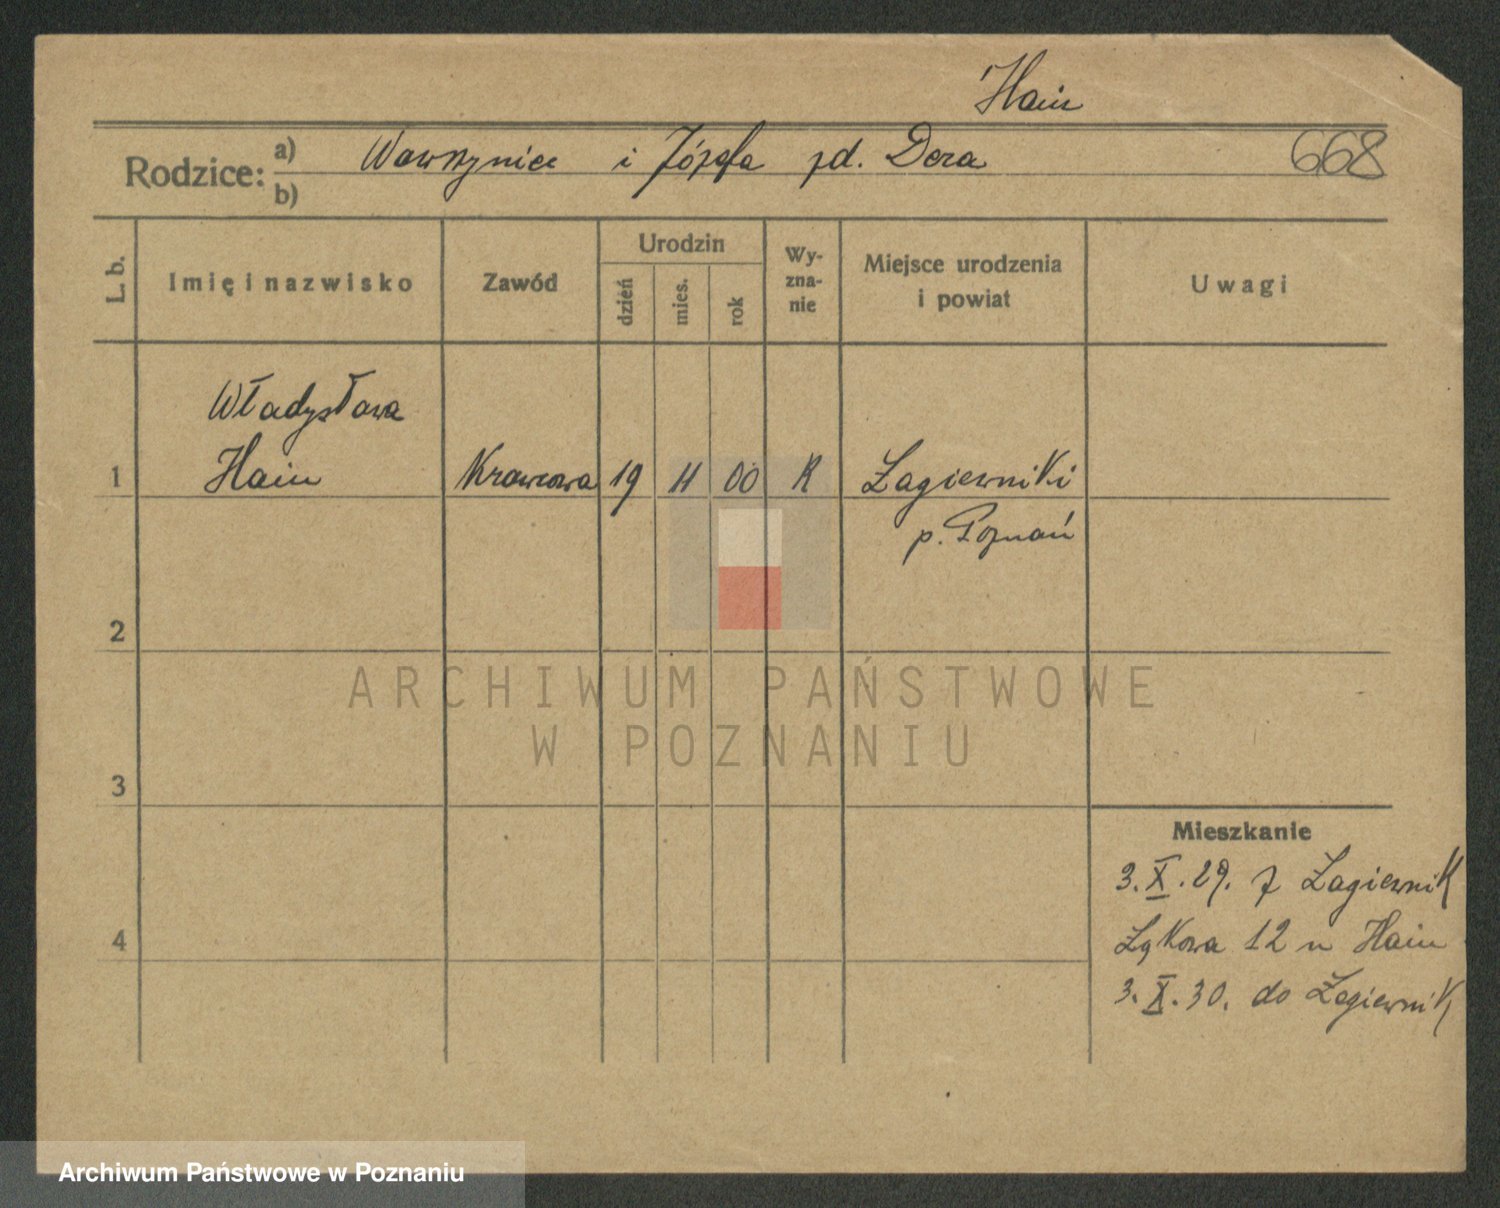 Hain
Rodzice: a) Wawrzyniec i Józefa zd. Dera 668
b)
L. b. Imię i nazwisko Zawód Urodzin dzień mies. rok Wy-zna-nie Miejsce urodzenia i powiat Uwagi
Władysława
1 Hain Krawcowa 19 11 00 K Łagiewniki
p. Poznań
2
ARCHIWUM PAŃSTWOWE
W POZNANIU
3
Mieszkanie
3.X.29. z Łagiewnik
4 Łąkowa 12 u Hain
3.X.30. do Łagiewnik
Archiwum Państwowe w Poznaniu